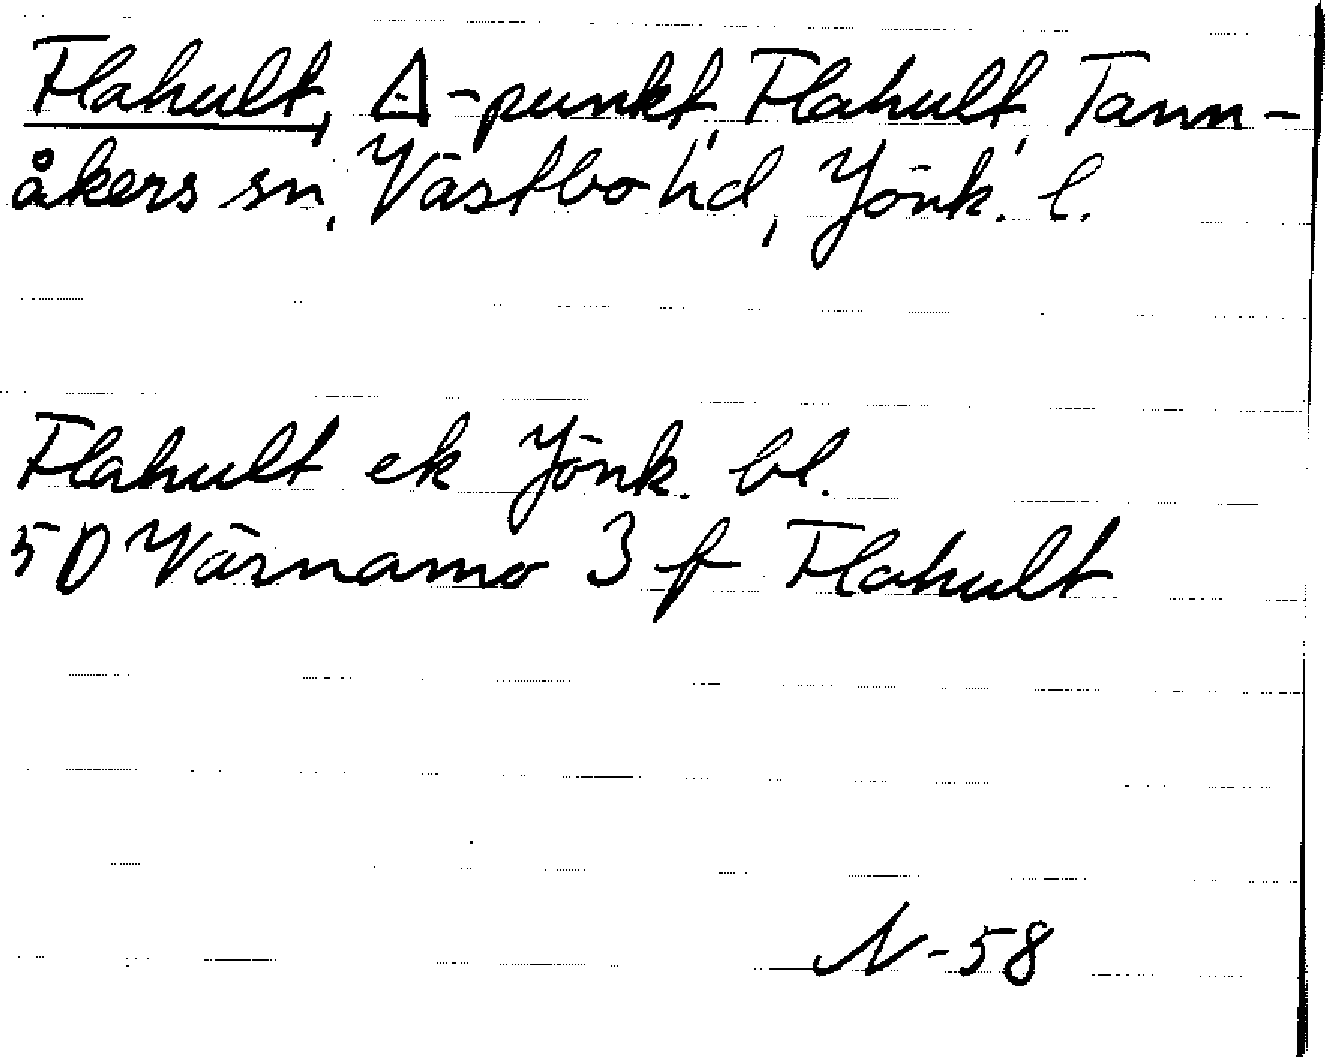 Flahult, △-punkt, Flahult, Tann-
åkers sn, Västbo hd, Jönk. l.
Flahult ek Jönk. bl.
5D Värnamo 3 f Flahult
N-58